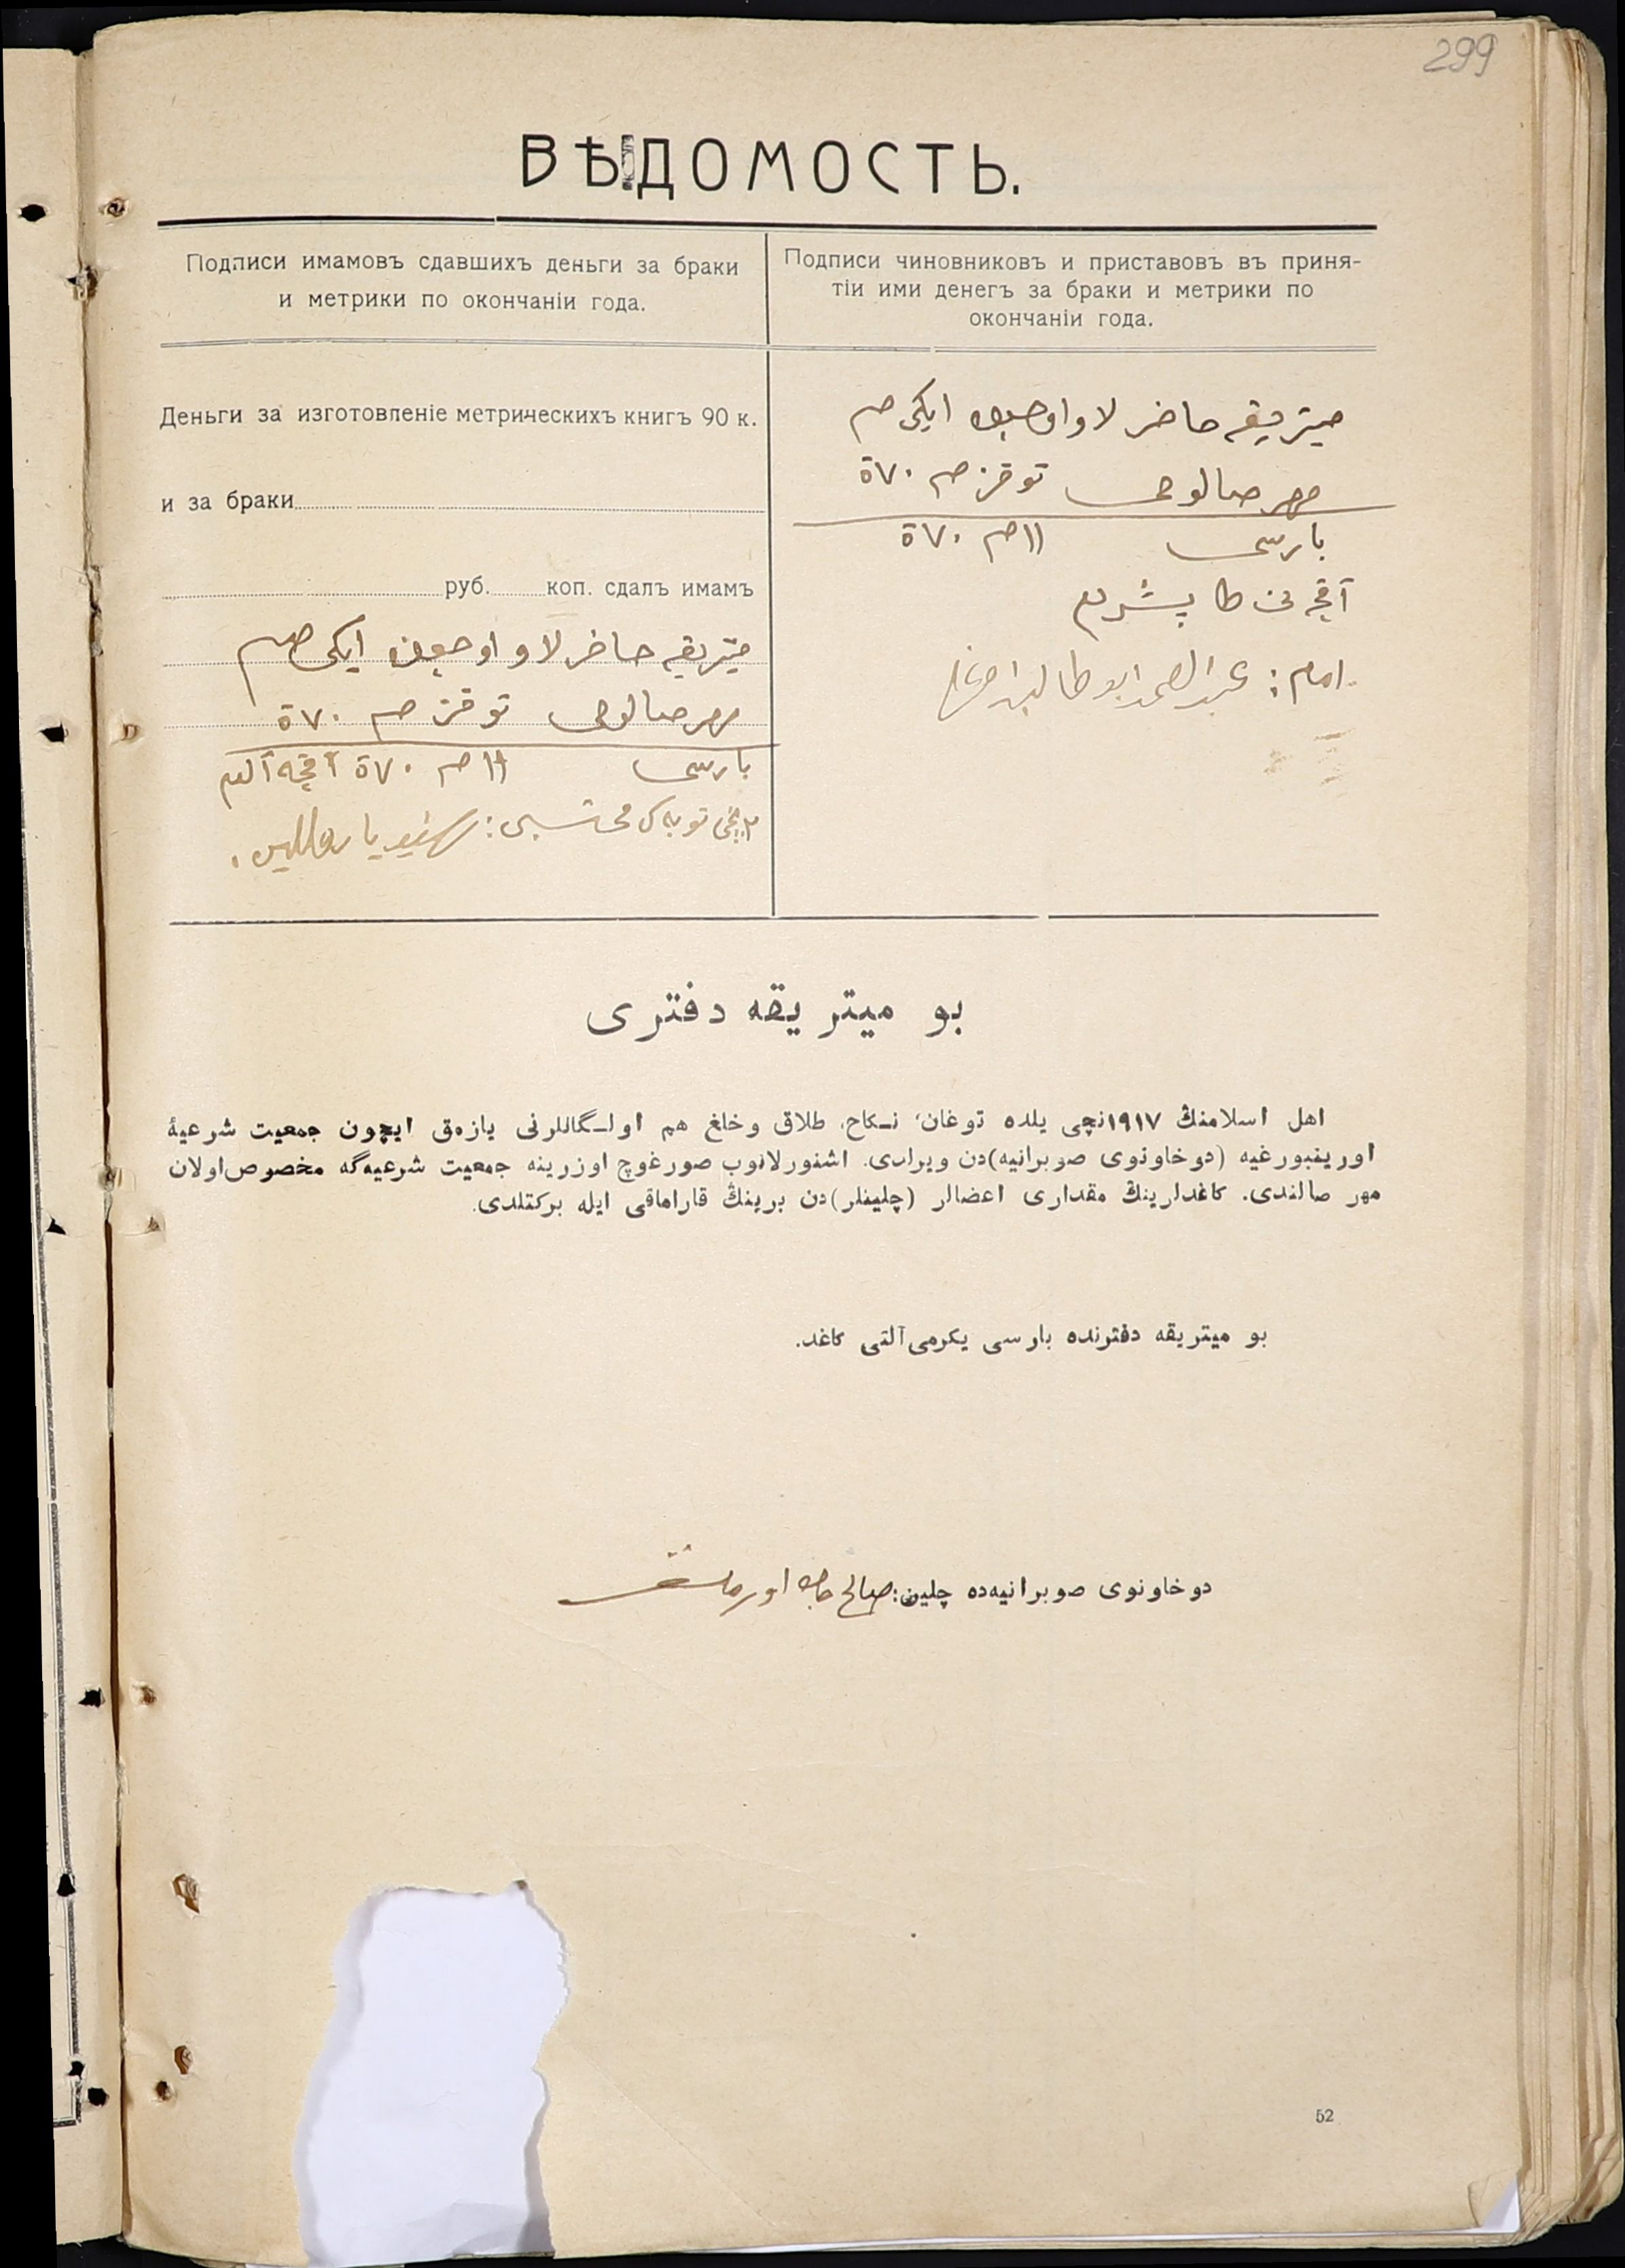 299
ВѢДОМОСТЬ.
Подписи имамовъ сдавшихъ деньги за браки
и метрики по окончаніи года.
Подписи чиновниковъ и приставовъ въ приня-
тіи ими денегъ за браки и метрики по
окончаніи года.
Деньги за изготовленіе метрическихъ книгъ 90 к.
и за браки
руб. коп. сдалъ имамъ
میتریقه حاضرلاو اوچون ایکی صم
مهر صالوی توقز صم ٧٠ ت
بارسی ١١ صم ٧٠ ت آقچه آلدم
محتسبی:
میتریقه حاضرلاو اوچون ایکی صم
مهر صالوی توقز صم ٧٠ ت
بارسی ١١ صم ٧٠ ت
آقچه نی طاپشردم
امام: عبدالصمد ابوطالب
بو میتریقه دفتری
اهل اسلامنڭ ١٩١٧نچی یلده توغان، نـكاح، طلاق وخلغ هم اولـگانلرنی یازمق ایچون جمعیت شرعیۀ
اورینبورغیه (دوخاونوی صوبرانیه)دن ویرلدی. اشنورلانوب صورغوچ اوزرینه جمعیت شرعیه‌گه مخصوص اولان
مهر صالندی. كاغدلارینڭ مقداری اعضالر (چلینلر)دن برینڭ قاراماقی ایله بركتلدی.
بو میتریقه دفترنده بارسی یكرمی آلتی كاغد.
دوخاونوی صوبرانیه‌ده چلین: صالح
52